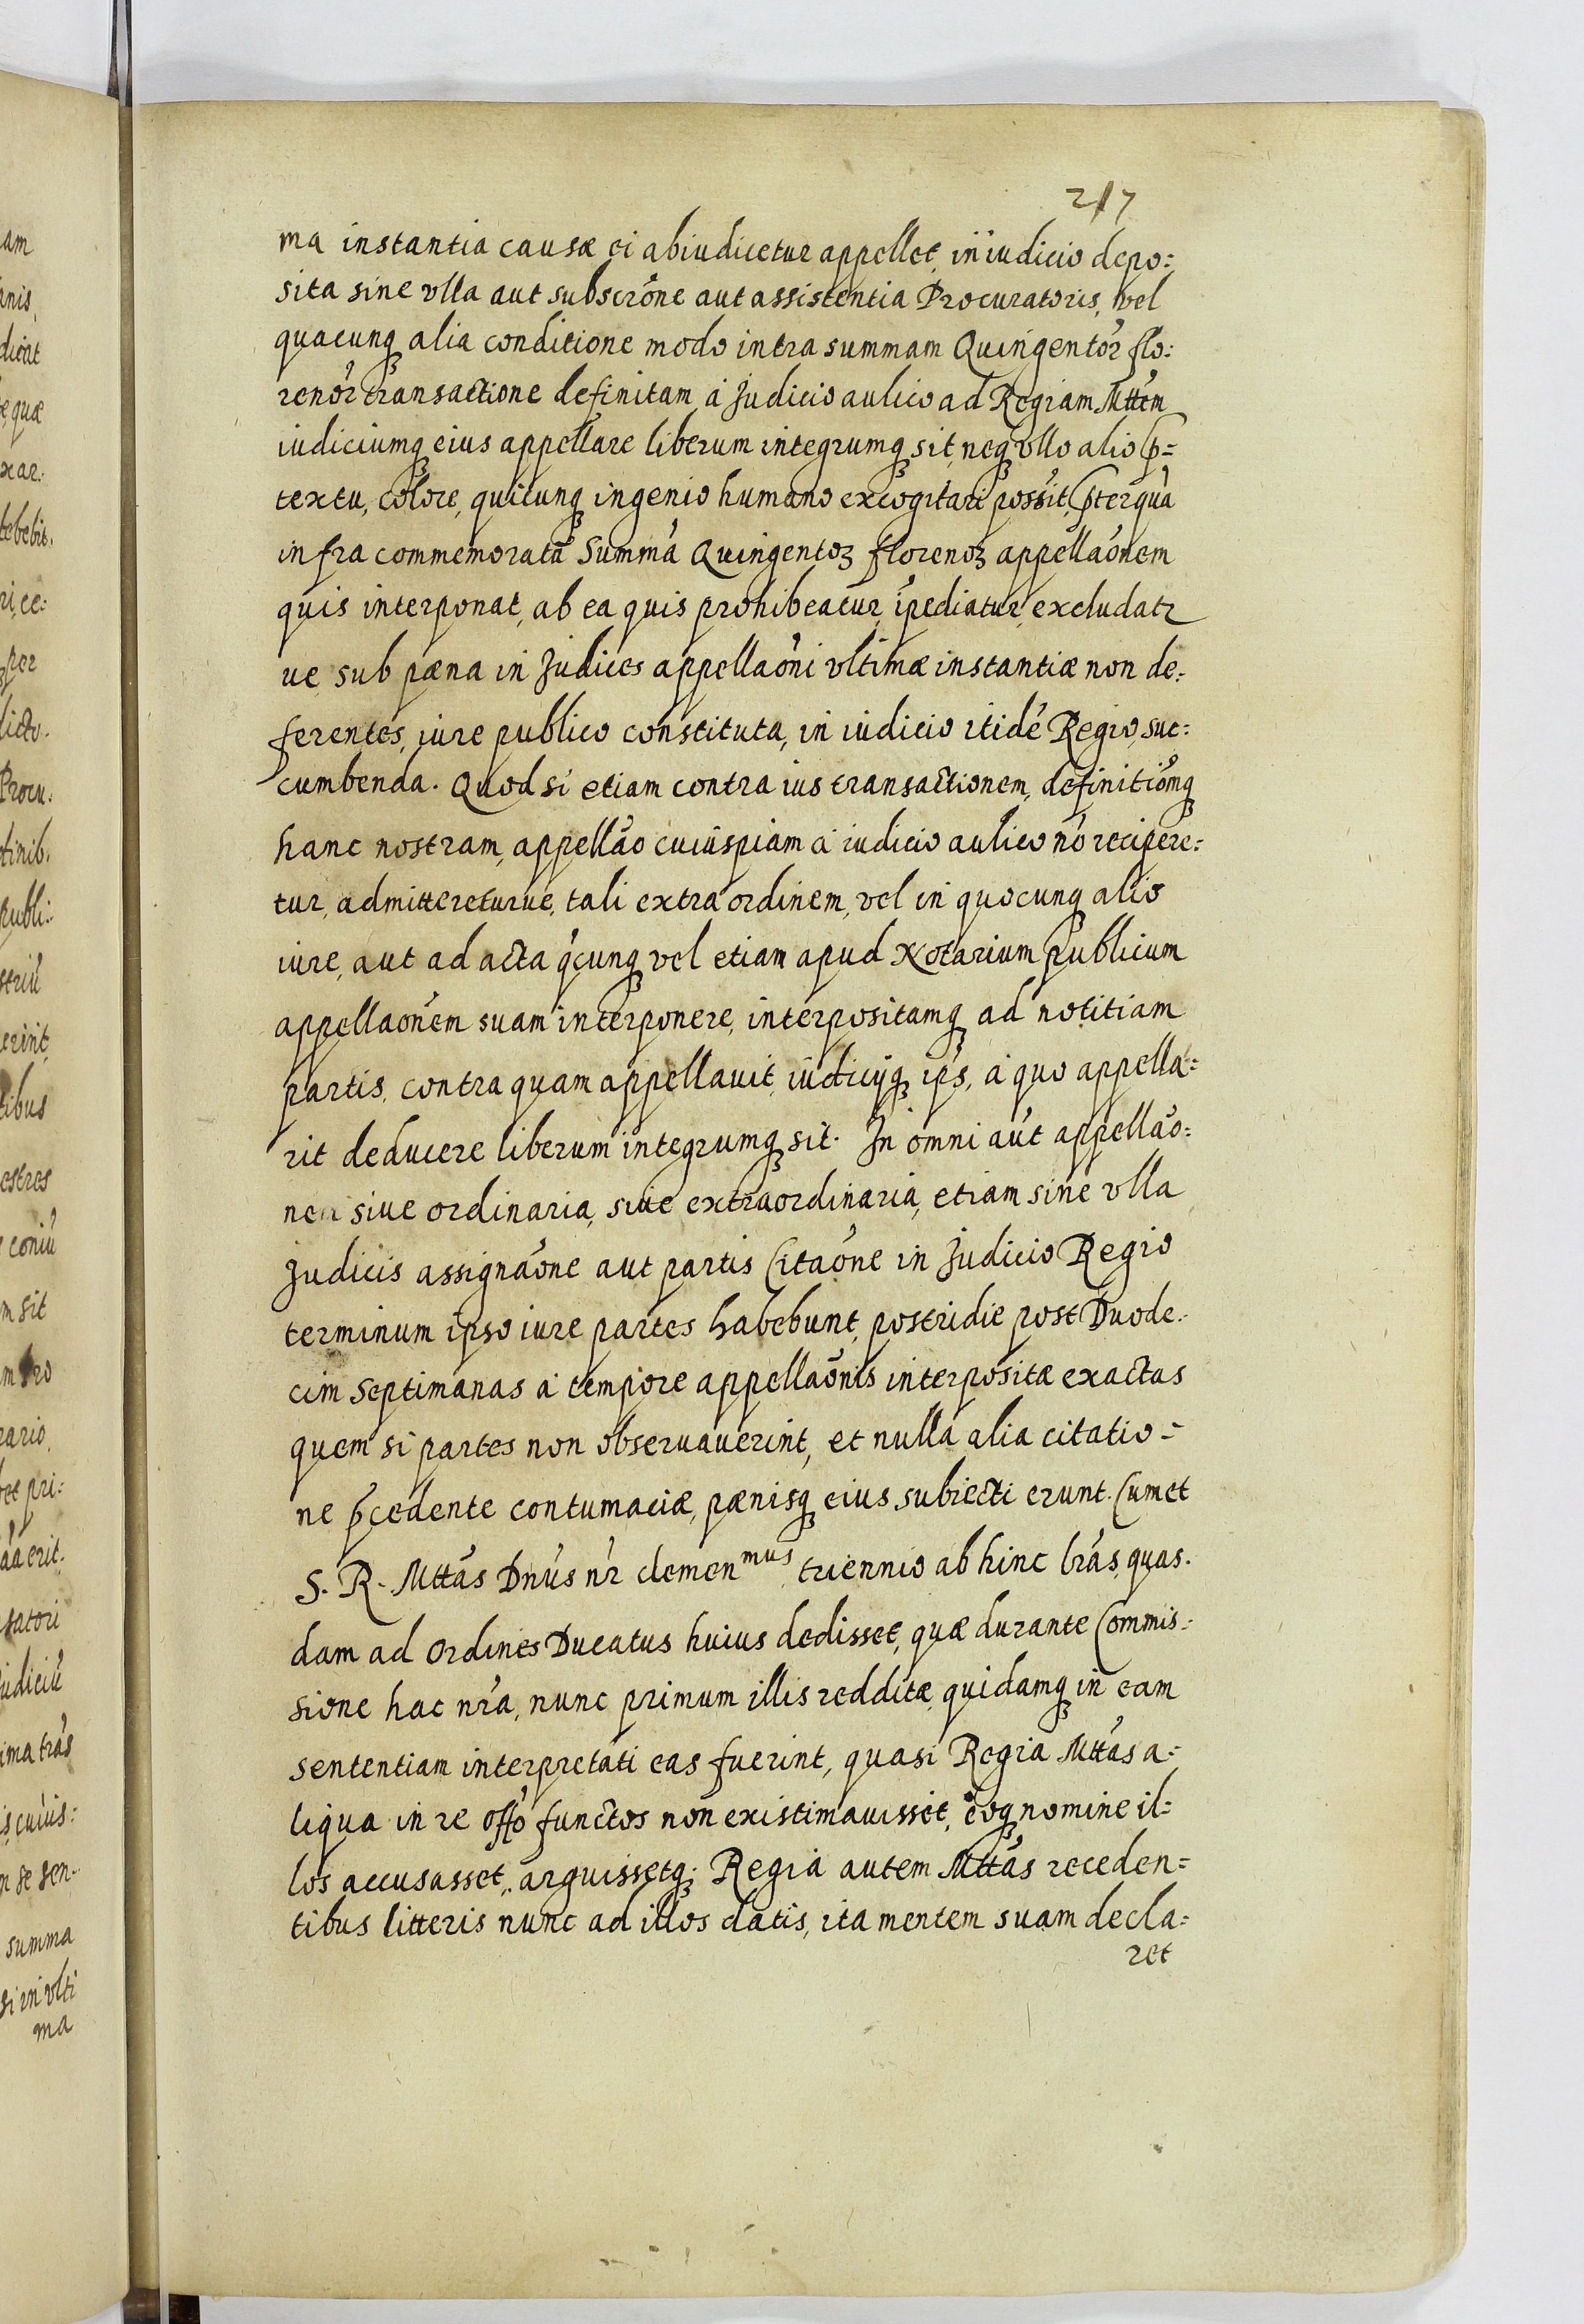 217
ma instantia causæ ei abiudicetur appellet, in iudicio depo:
sita sine vlla aut subscrõne aut assistentia Procuratoris, vel
quacunq alia conditione modo intra summam Quingentor flo:
renor transactione definitam á Judicio aulico ad Regiam Mttem
iudiciumq eius appellare liberum integrumq sit, neq vllo alio p̄=
textu, colore, quicunq ingenio humano excogitari possit, p̄terquã
infra commemoratã Summã Quingentoꝝ florenoꝝ appellaõnem
quis interponat, ab ea quis prohibeatur, ĩpediatur, excludatr
ue, sub pæna in Judices appellaõni vltimæ instantiæ non de:
ferentes, iure publico constituta, in iudicio itidẽ Regio, suc:
cumbenda. Quod si etiam contra ius transactionem, definitiõmq
hanc nostram, appellaõ cuiuspiam á iudicio aulico nõ recipere:
tur, admittereturue, tali extra ordinem, vel in quocunq alio
iure, aut ad acta q̃cunq vel etiam apud Notarium Publicum
appellaõnem suam interponere, interpositamq ad notitiam
partis, contra quam appellauit, iudicijq ips, á quo appella:
rit deducere liberum integrumq sit. In omni aũt appellaõ:
nen siue ordinaria, siue extraordinaria, etiam sine vlla
Judicis assignaõne aut partis Citaõne in Judicio Regio
terminum ipso iure partes habebunt, postridie post Duode.
cim Septimanas á tempore appellaõnis interpositæ exactas
quem si partes non obseruauerint, et nulla alia citatio=
ne p̄cedente contumaciæ, pænisq eius subiecti erunt. Cum et
S. R. Mttas Dnũs nr̃ clemen^mus triennio ab hinc lrãs, quas.
dam ad Ordines Ducatus huius dedisset, quæ durante Commis:
sione hac nrã, nunc primum illis redditæ, quidamq in eam
sententiam interpretati eas fuerint, quasi Regia Mttãs a:
liqua in re offõ functos non existimauisset, eoq nomine il=
los accusasset, arguissetq; Regia autem Mttãs receden=
tibus litteris nunc ad illos datis, ita mentem suam decla:
ret